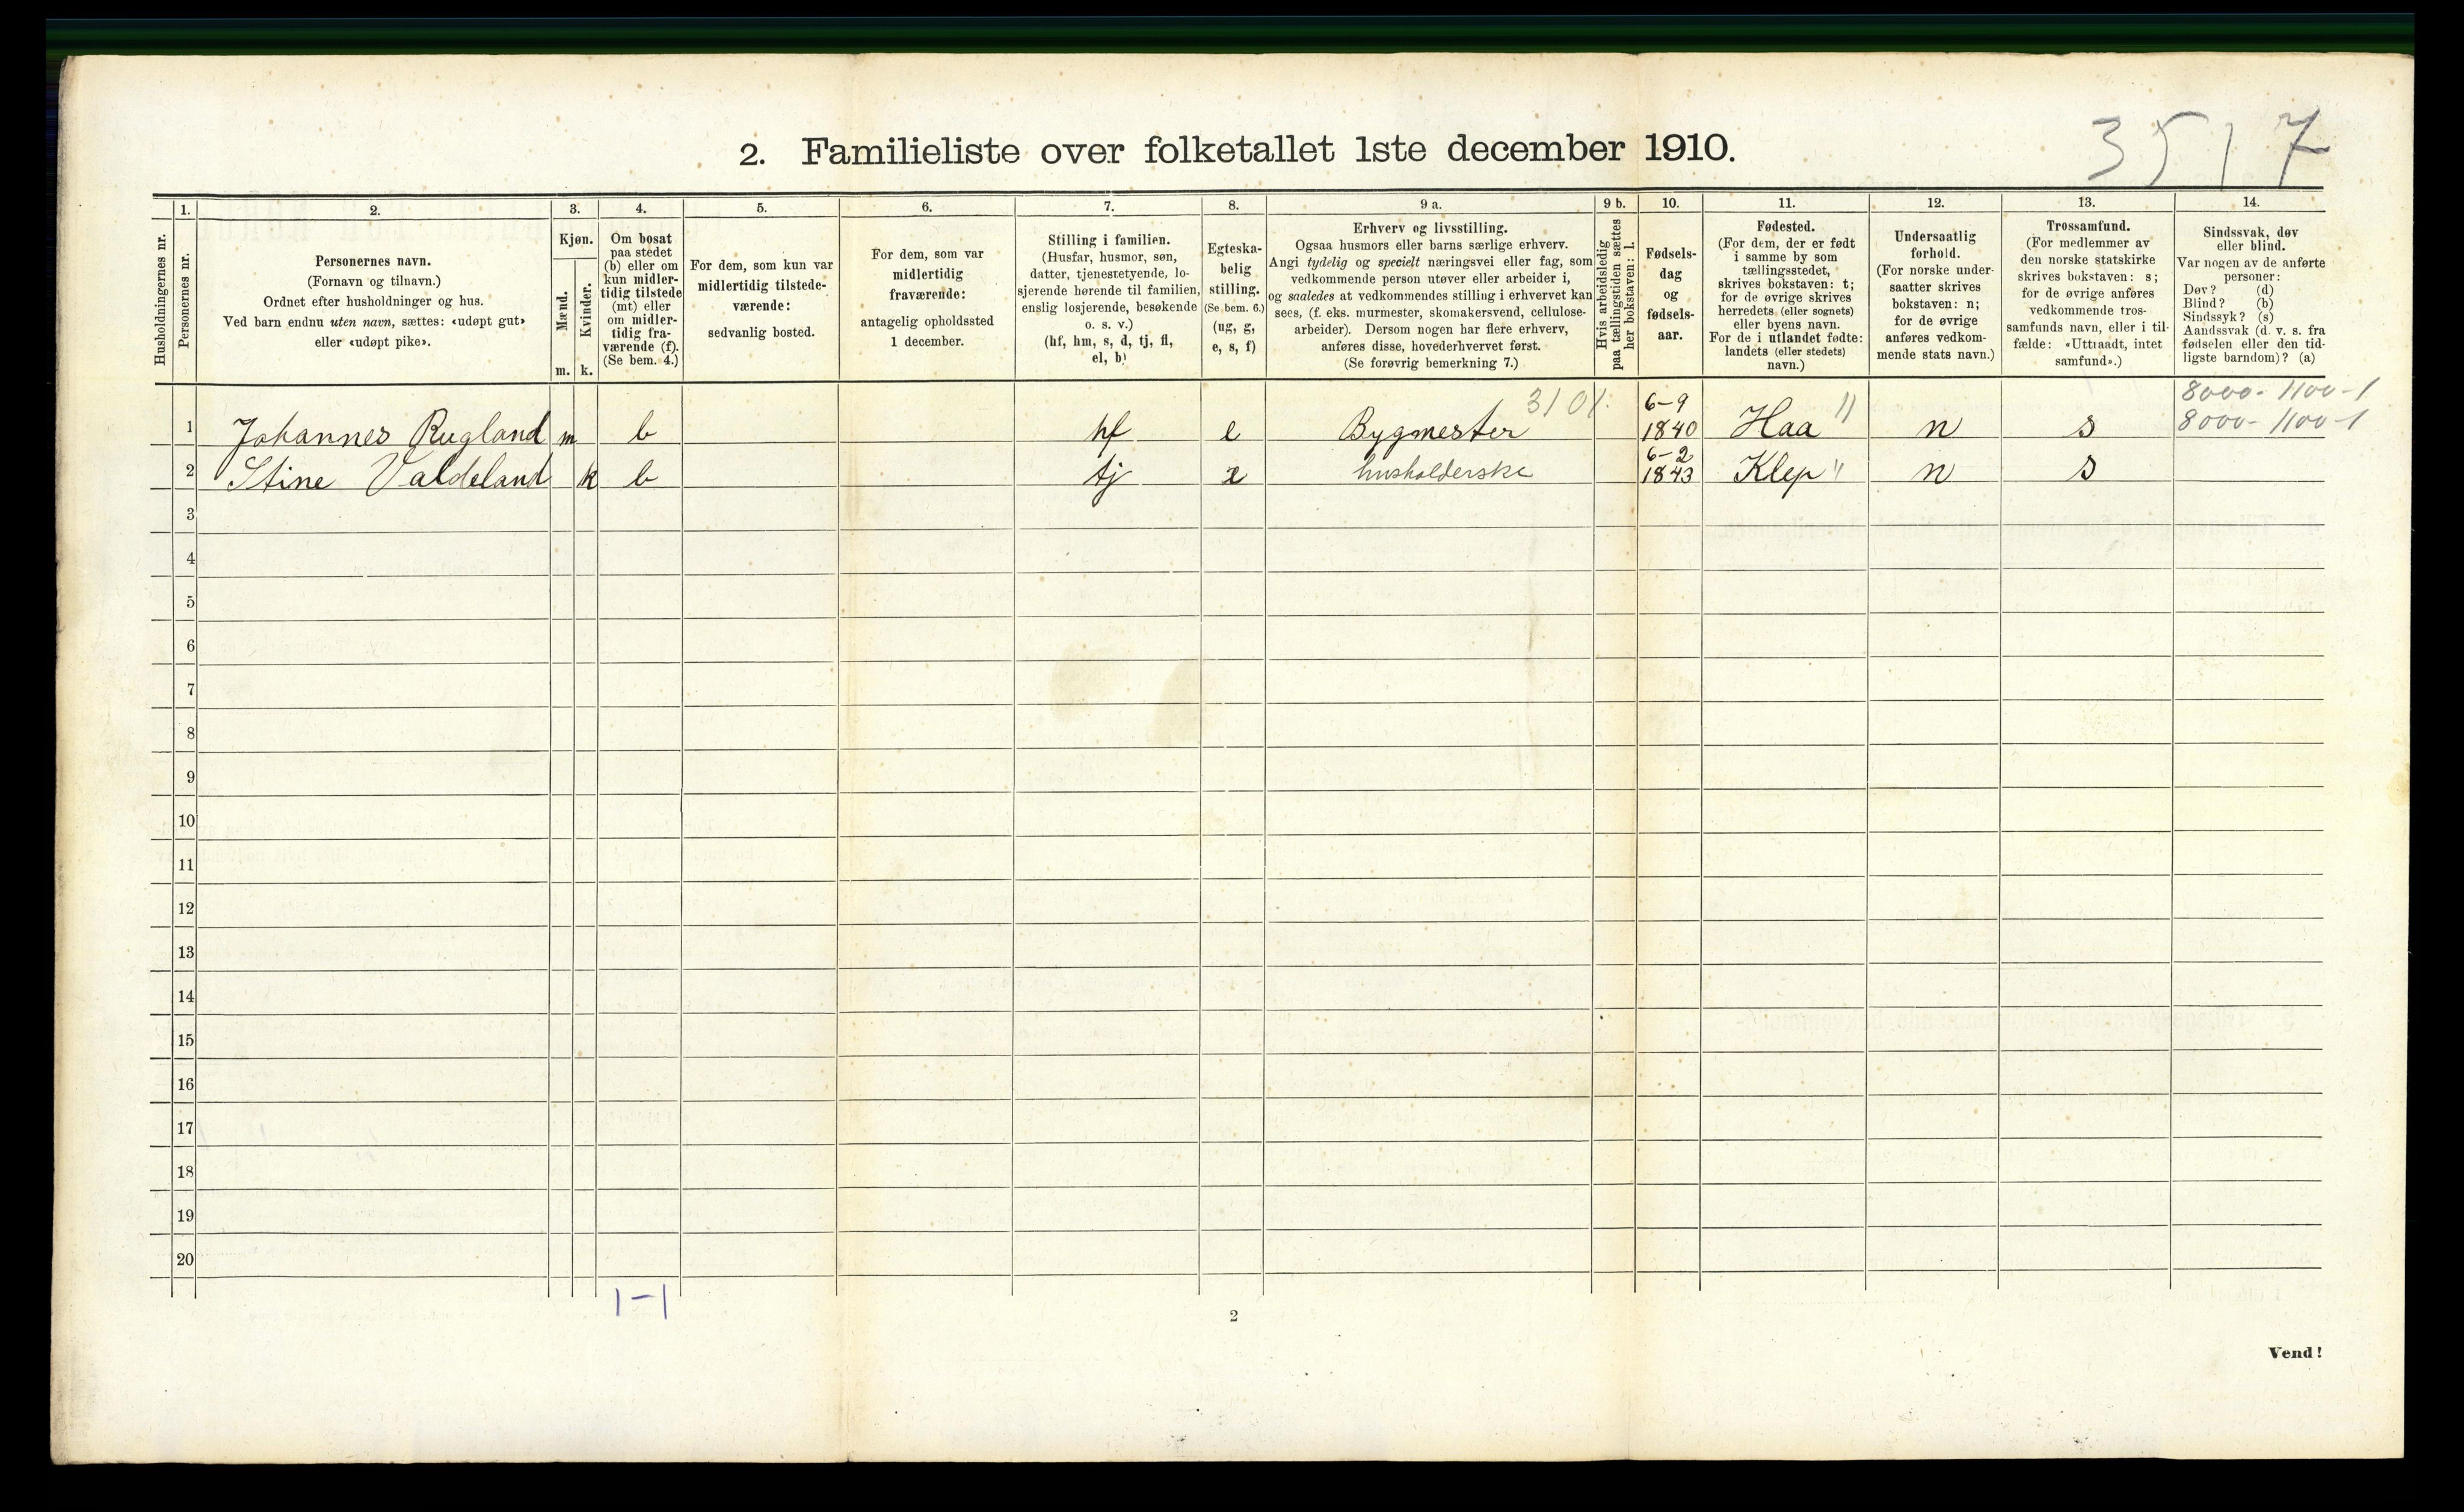 3517
2. Familieliste over folketallet 1ste december 1910.
1. 2. 3. 4. 5. 6. 7. 8. 9 a. 9 b. 10. 11. 12. 13. 14.
Husholdningernes nr.
Personernes nr.
Personernes navn.
(Fornavn og tilnavn.)
Ordnet efter husholdninger og hus.
Ved barn endnu uten navn, sættes: «udøpt gut»
eller «udøpt pike».
Kjøn.
Mænd.
m.
Kvinder.
k.
Om bosat
paa stedet
(b) eller om
kun midler-
tidig tilstede
(mt) eller
om midler-
tidig fra-
værende (f).
(Se bem. 4.)
For dem, som kun var
midlertidig tilstede-
værende:
sedvanlig bosted.
For dem, som var
midlertidig
fraværende:
antagelig opholdssted
1 december.
Stilling i familien.
(Husfar, husmor, søn,
datter, tjenestetyende, lo-
sjerende hørende til familien,
enslig losjerende, besøkende
o. s. v.)
(hf, hm, s, d, tj, fl,
el, b)
Egteska-
belig
stilling.
(Se bem. 6.)
(ug, g,
e, s, f)
Erhverv og livsstilling.
Ogsaa husmors eller barns særlige erhverv.
Angi tydelig og specielt næringsvei eller fag, som
vedkommende person utøver eller arbeider i,
og saaledes at vedkommendes stilling i erhvervet kan
sees, (f. eks. murmester, skomakersvend, cellulose-
arbeider). Dersom nogen har flere erhverv,
anføres disse, hovederhvervet først.
(Se forøvrig bemerkning 7.)
Hvis arbeidsledig
paa tællingstiden sættes
her bokstaven: l.
Fødsels-
dag
og
fødsels-
aar.
Fødested.
(For dem, der er født
i samme by som
tællingsstedet,
skrives bokstaven: t;
for de øvrige skrives
herredets (eller sognets)
eller byens navn.
For de i utlandet fødte:
landets (eller stedets)
navn.)
Undersaatlig
forhold.
(For norske under-
saatter skrives
bokstaven: n;
for de øvrige
anføres vedkom-
mende stats navn.)
Trossamfund.
(For medlemmer av
den norske statskirke
skrives bokstaven: s;
for de øvrige anføres
vedkommende tros-
samfunds navn, eller i til-
fælde: «Uttraadt, intet
samfund».)
Sindssvak, døv
eller blind.
Var nogen av de anførte
personer:
Døv? (d)
Blind? (b)
Sindssyk? (s)
Aandssvak (d. v. s. fra
fødselen eller den tid-
ligste barndom)? (a)
8000-1100-1
3101. 6-9
1 Johannes Rugland m b hf e Bygmester 1840 Haa " n s 8000-1100-1
6-2
2 Stine Valdeland k b tj e husholderske 1843 Klep " n s
3
4
5
6
7
8
9
10
11
12
13
14
15
16
17
18
19
20
1-1
2
Vend!